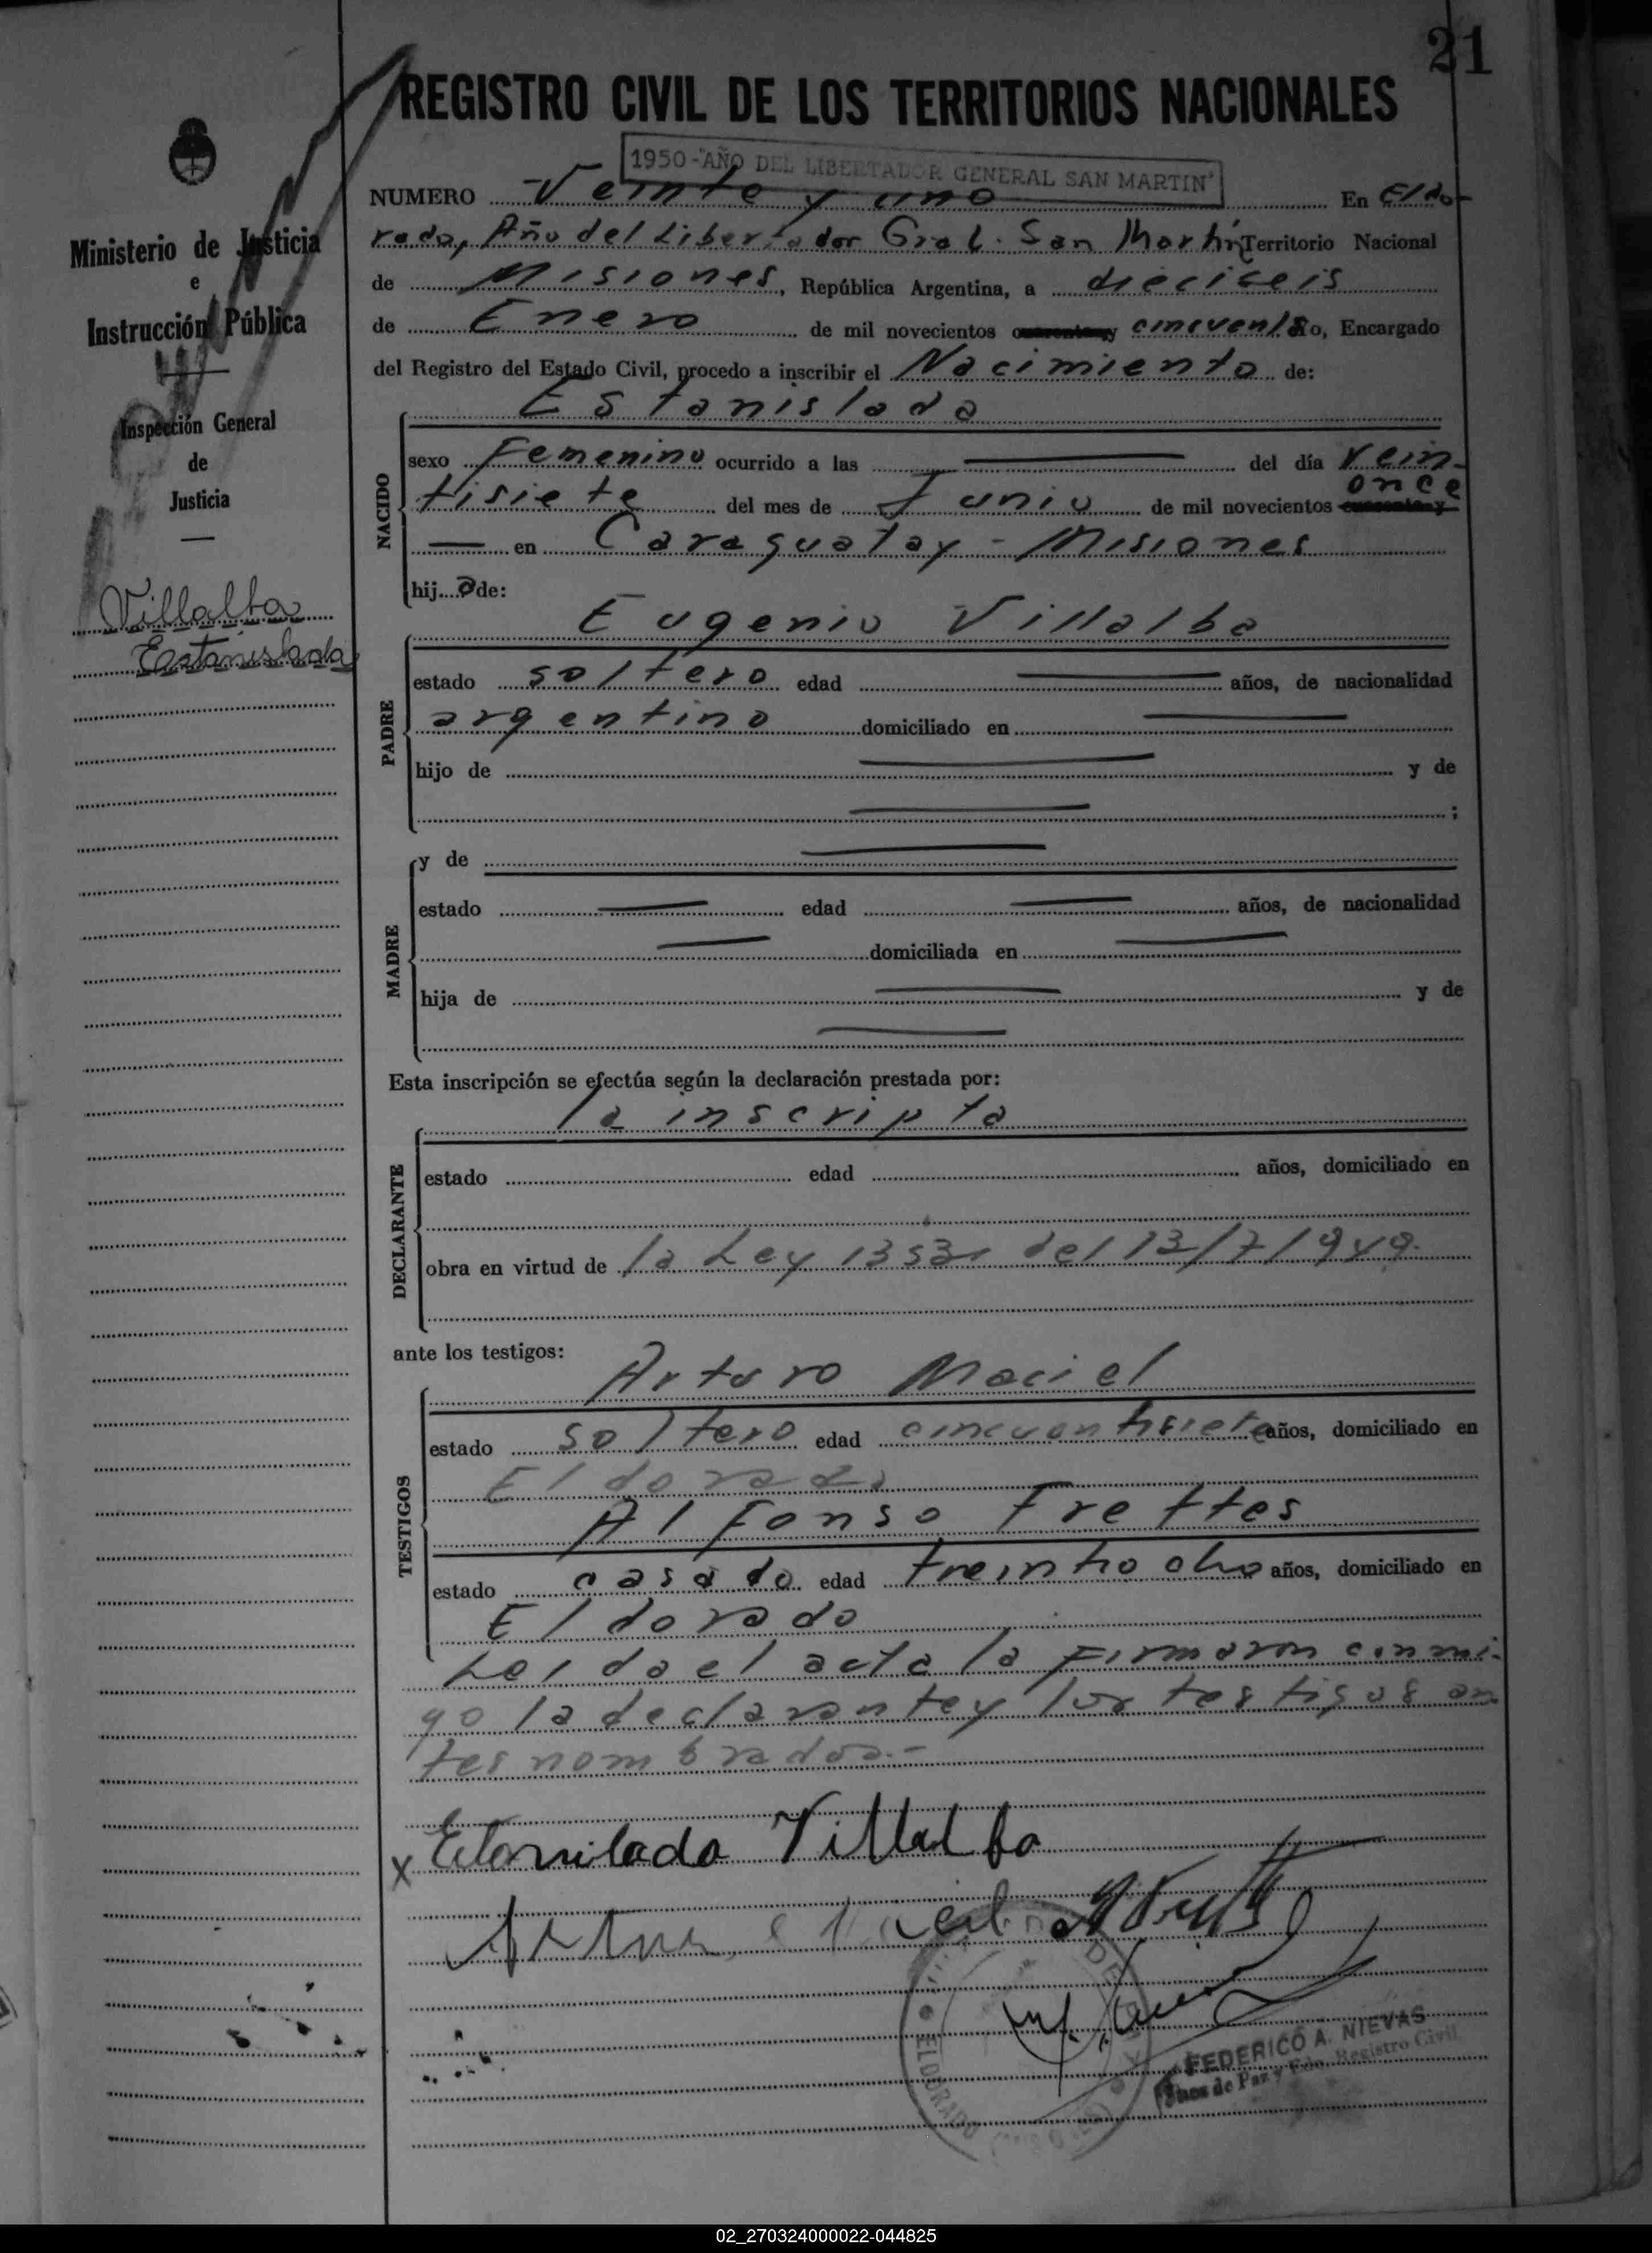 21
REGISTRO CIVIL DE LOS TERRITORIOS NACIONALES
1950-"AÑO DEL LIBERTADOR GENERAL SAN MARTIN"
NUMERO Veinte y uno En Eldo-
rado, Año del Libertador Gral. San Martín Territorio Nacional
de Misiones, República Argentina, a dieciseis
de Enero de mil novecientos cincuenta Yo, Encargado
del Registro del Estado Civil, procedo a inscribir el Nacimiento de:
Estanislada
NACIDO
sexo Femenino ocurrido a las del día vein-
tisiete del mes de Junio de mil novecientos once
en Caraguatay - Misiones
hija de:
Eugenio Villalba
PADRE
estado soltero edad años, de nacionalidad
argentino domiciliado en
hijo de y de
;
MADRE
y de
estado edad años, de nacionalidad
domiciliada en
hija de y de
Esta inscripción se efectúa según la declaración prestada por:
la inscripta
DECLARANTE
estado edad años, domiciliado en
obra en virtud de la Ley del 13/7/949.
ante los testigos:
TESTIGOS
Arturo Maciel
estado soltero edad cincuentisiete años, domiciliado en
Eldorado
Alfonso Frettes
estado casado edad treintiocho años, domiciliado en
Eldorado
Leída el acta la firmaron conmi-
go la declarante y los testigos an-
tes nombrados.-
x Estanilada Villalba
Arturo Maciel
ELDORADO
FEDERICO A. NIEVAS
Juez de Paz y Edo. Registro Civil
Ministerio de Justicia
e
Instrucción Pública
Inspección General
de
Justicia
Villalba
Estanislada
02_270324000022-044825